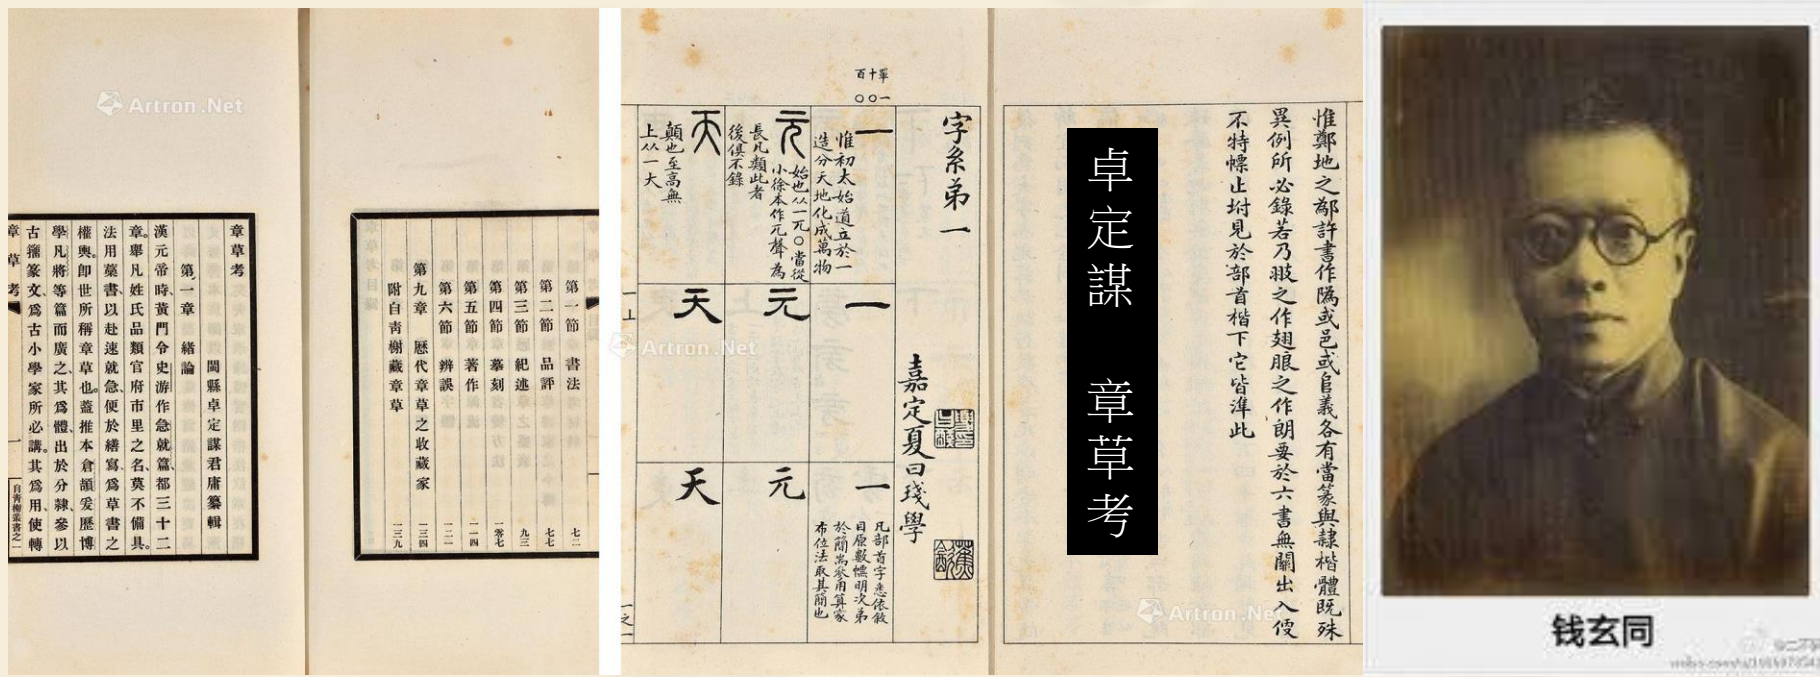 章草考
閩縣卓定謀君庸纂輯
第一章 緒論
漢元帝時黃門令史游作急就篇、都三十二
章。舉凡姓氏品類官府市里之名、莫不備具。
法用藁書以赴速就急、便於繕寫、爲草書之
權輿。卽世所稱章草也。蓋推本倉頡爰歷博
學凡將等篇而廣之、其爲體出於分隸、參以
古籀篆文、爲古小學家所必講。其爲用、使轉
章草考
一
自靑榭叢書之一
第一節 書法 七二
第二節 品評 七七
第三節 紀述 九三
第四節 摹刻 一零七
第五節 著作 一一四
第六節 辨誤 一二一
第九章 歷代章草之收藏家 一三四
附自靑榭藏章草 一三九
Artron.Net
百十單
〇〇一
字系弟一
嘉定夏曰璞學
一
惟初太始道立於一
造分天地化成萬物
元
始也从一兀〇當從
小徐本作兀聲爲
長凡類此者
後俱不錄
天
顛也至高無
上从一大
一
元
天
一
凡部首字悉依敘
目原數幖明次弟
於簡耑參用算家
布位法取其簡也
元
天
一上
一之一
Artron.Net
惟鄭地之鄢許書作隖或邑或𨸏義各有當篆與隸楷體旣殊
異例所必錄若乃翄之作翅朖之作朗要於六書無關出入傻
不特幖止坿見於部首楷下它皆準此
卓定謀 章草考
Artron.Net
钱玄同